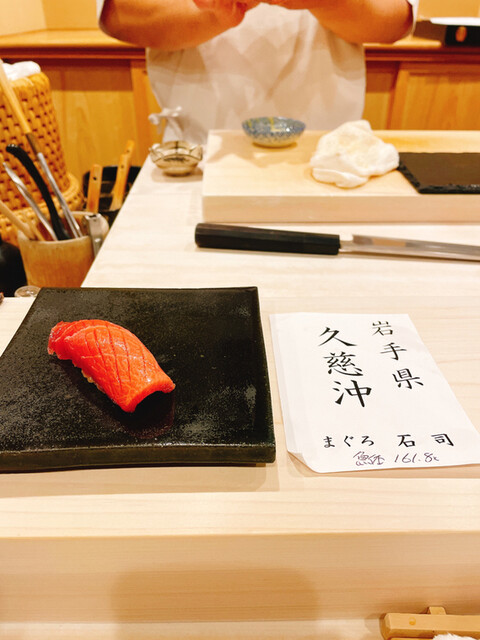 岩手県
久慈沖
まぐろ 石司
161.8